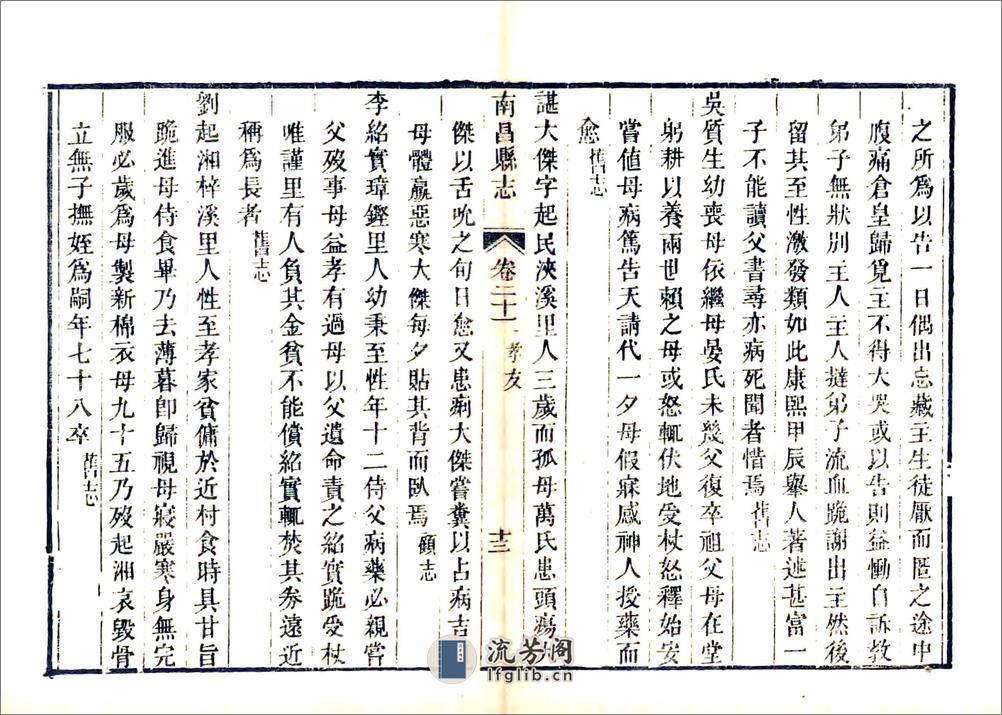 之所爲以告一日偶出忘藏主生徒厭而匿之途中
腹痛倉皇歸覓主不得大哭或以告則益慟自訴教
弟子無狀别主人主人撻弟子流血跪謝出主然後
留其至性激發類如此康熙甲辰舉人著述甚富一
子不能讀父書尋亦病死聞者惜焉舊志
吳質生幼喪母依繼母晏氏未㡬父復卒祖父母在堂
躬耕以養兩世賴之母或怒輒伏地受杖怒釋始安
嘗值母病篤告天請代一夕母假寐感神人授藥而
愈舊志
諶大傑字起民浹溪里人三歲而孤母萬氏患頭瘍大
南昌縣志 卷二十一 孝友 十三
傑以舌吮之旬日愈又患痢大傑嘗糞以占病吉
母體羸惡寒大傑每夕貼其背而臥焉顧志
李紹實璋鏗里人幼秉至性年十二侍父病藥必親嘗
父歿事母益孝有過母以父遺命責之紹實跪受杖
唯謹里有人負其金貧不能償紹實輒焚其券遠近
稱爲長者舊志
劉起湘梓溪里人性至孝家貧傭於近村食時具甘旨
跪進母侍食畢乃去薄暮卽歸視母寢嚴寒身無完
服必歲爲母製新棉衣母九十五乃歿起湘哀毀骨
立無子撫姪爲嗣年七十八卒舊志
流芳阁
lfglib.cn